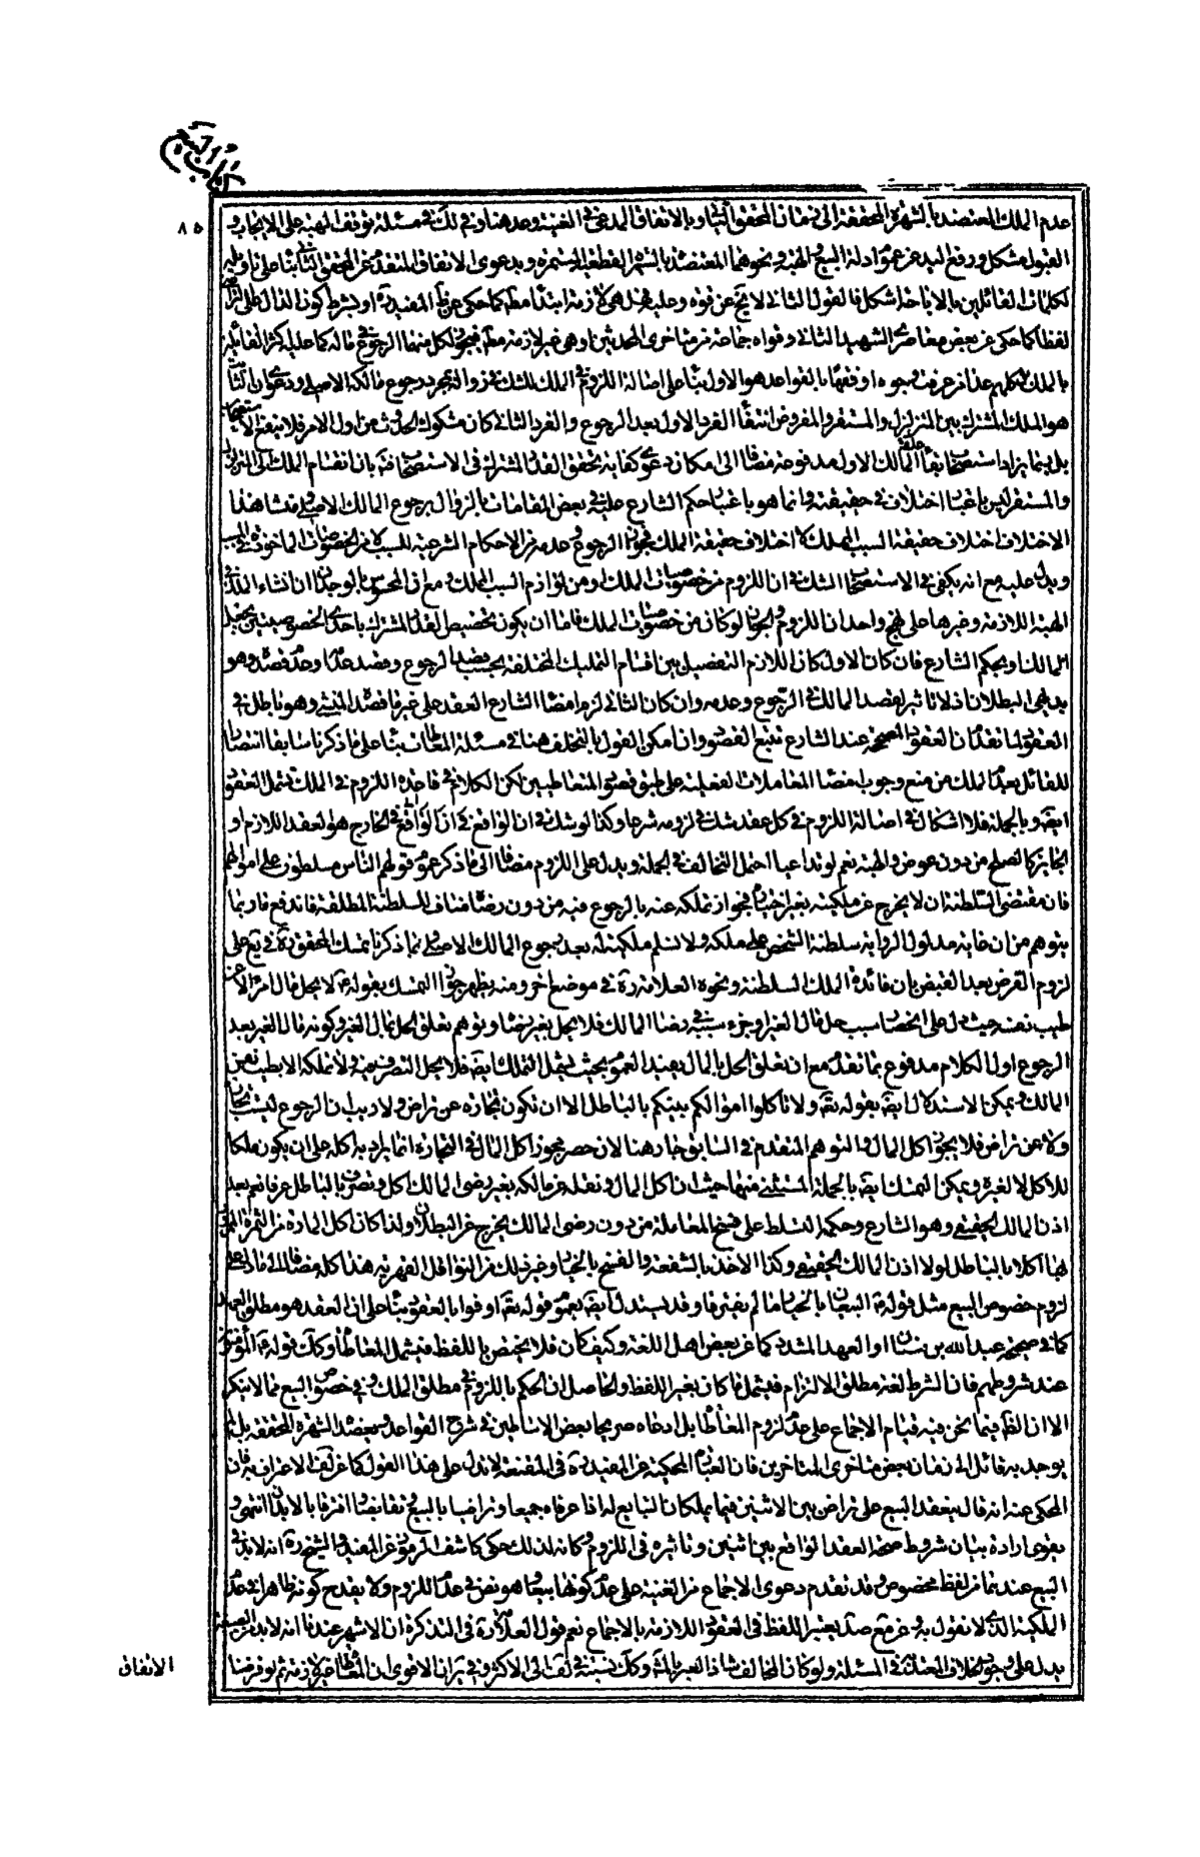 كتاب البيع
٨٥
عدم الملك المعتضد بالشهرة المحققة الى زمان المحقق الثاني و بالاتفاق المدعى في الغنية و عد هنا و في لك في مسئلة توقف الهبة على الايجاب و
القبول مشكل و رفع اليد عن عموم ادلة البيع و الهبة و نحوهما المعتضد بالسيرة القطعية المستمرة و بدعوى الاتفاق المتقدم عن المحقق الثاني بناء على تاويله
لكلمات القائلين بالاباحة اشكل فالقول الثاني لا يخ عن قوة و عليه فهل هي لازمة ابتداء مطلقا كما حكى عن ظ المفيد ره او بشرط كون الدال على التراضي
لفظا كما حكى عن بعض معاصرى الشهيد الثاني و قواه جماعة من متاخرى المحدثين او هي غير لازمة مطلقا فيجوز لكل منهما الرجوع في ماله كما عليه اكثر القائلين
بالملك بل كلهم عدا من عرفت وجوه اوفقها بالقواعد هو الاول بناء على اصالة اللزوم في الملك للشك في زواله بمجرد رجوع مالكه الاصلي و دعوى ان الثابت
هو الملك المشترك بين المتزلزل و المستقر و المفروض انتفاء الفرد الاول بعد الرجوع و الفرد الثاني كان مشكوك الحدوث من اول الامر فلا ينفع الاستصحاب
بل ربما يزاد استصحاب بقاء علقة المالك الاول مدفوعة مضافا الى امكان دعوى كفاية تحقق القدر المشترك في الاستصحاب فتامل بان انقسام الملك الى المتزلزل
و المستقر ليس باعتبار اختلاف في حقيقته و انما هو باعتبار حكم الشارع عليه في بعض المقامات بالزوال برجوع المالك الاصلي و منشا هذا
الاختلاف اختلاف حقيقة السبب المملك لا اختلاف حقيقة الملك فجواز الرجوع و عدمه من الاحكام الشرعية للسبب لا من الخصوصيات الماخوذة في المسبب
و يدل عليه مع انه يكفي في الاستصحاب الشك في ان اللزوم من خصوصيات الملك او من لوازم السبب المملك و مع ان المحسوس بالوجدان ان انشاء الملك في
الهبة اللازمة و غيرها على نهج واحد ان اللزوم و الجواز لو كان من خصوصيات الملك فاما ان يكون تخصيص القدر المشترك باحدى الخصوصيتين بجعل
المالك او بحكم الشارع فان كان الاول كان اللازم التفصيل بين اقسام التمليك المختلفة بحسب قصد الرجوع و قصد عدمه او عدم قصده و هو
بديهى البطلان اذ لا تاثير لقصد المالك في الرجوع و عدمه و ان كان الثاني لزم امضاء الشارع العقد على غير ما قصده المنشئ و هو باطل في
العقود لما تقدم ان العقود المصححة عند الشارع تتبع القصود و ان امكن القول بالتخلف هنا في مسئلة المعاطاة بناء على ما ذكرنا سابقا انتصارا
للقائل بعدم الملك من منع وجوب امضاء المعاملات الفعلية على طبق قصود المتعاطيين لكن الكلام في قاعدة اللزوم في الملك تشمل العقود
ايضا و بالجملة فلا اشكال في اصالة اللزوم في كل عقد شك في لزومه شرعا و كذا لو شك في ان الواقع في الخارج هو العقد اللازم او
الجايز كالصلح من دون عوض و الهبة نعم لو تداعيا احتمل التحالف في الجملة و يدل على اللزوم مضافا الى ما ذكر عموم قولهم الناس مسلطون على اموالهم
فان مقتضى السلطنة ان لا يخرج عن ملكيته بغير اختياره فجواز تملكه عنه بالرجوع فيه من دون رضاه مناف للسلطنة المطلقة فاندفع ما ربما
يتوهم من ان غاية مدلول الرواية سلطنة الشخص على ملكه و لا نسلم ملكيته له بعد رجوع المالك الاصلي و بما ذكرنا تمسك المحقق ره في يع على
لزوم القرض بعد القبض بان فائدة الملك السلطنة و نحوه العلامة ره في موضع اخر و منه يظهر جواز التمسك بقوله ع لا يحل مال امرء الا عن
طيب نفسه حيث دل على انحصار سبب حل مال الغير او جزء سببه في رضا المالك فلا يحل بغير رضاه و توهم تعلق الحل بمال الغير و كونه مال الغير بعد
الرجوع اول الكلام مدفوع بما تقدم مع ان تعلق الحل بالمال يفيد العموم بحيث يشمل التملك ايضا فلا يحل التصرف فيه و لا تملكه الا بطيب نفس
المالك و يمكن الاستدلال ايضا بقوله تعالى و لا تاكلوا اموالكم بينكم بالباطل الا ان تكون تجارة عن تراض و لا ريب ان الرجوع ليست تجارة
و لا عن تراض فلا يجوز اكل المال و التوهم المتقدم في السابق جار هنا لان حصر مجوز اكل المال في التجارة انما يراد به اكله على ان يكون ملكا
للاكل لا لغيره و يمكن التمسك ايضا بالجملة المستثنى منها حيث ان اكل المال و نقله عن مالكه بغير رضى المالك اكل و تصرف بالباطل عرفا نعم بعد
اذن المالك الحقيقي و هو الشارع و حكمه التسلط على فسخ المعاملة من دون رضى المالك يخرج عن البطلان و لذا كان اكل المارة من الثمرة الممرور
بها اكلا بالباطل لولا اذن المالك الحقيقي و كذا الاخذ بالشفعة و الفسخ بالخيار و غير ذلك من النواقل القهرية هذا كله مضافا الى ما دل على
لزوم خصوص البيع مثل قوله ع البيعان بالخيار ما لم يفترقا و قد يستدل ايضا بعموم قوله تعالى اوفوا بالعقود بناء على ان العقد هو مطلق العهد
كما في صحيحة عبد الله بن سنان او العهد المشدد كما عن بعض اهل اللغة و كيف كان فلا يختص باللفظ فيشمل المعاطاة و كذلك قوله ع المؤمنون
عند شروطهم فان الشرط لغة مطلق الالتزام فيشمل ما كان بغير اللفظ و الحاصل ان الحكم باللزوم في مطلق الملك و في خصوص البيع مما لا ينكر
الا ان الظ فيما نحن فيه قيام الاجماع على عدم لزوم المعاطاة بل ادعاه صريحا بعض الاساطين في شرح القواعد و يعضده الشهرة المحققة بل لم
يوجد به قائل الى زمان بعض متاخرى المتاخرين فان العبارة المحكية عن المفيد ره في المقنعة لا تدل على هذا القول كما عن لف الاعتراف به فان
المحكى عنه انه قال ينعقد البيع على تراض بين الاثنين فيما يملكان التبايع له اذا عرفاه جميعا و تراضيا بالبيع و تقابضا و افترقا بالابدان انتهى و
يقوى ارادة بيان شروط صحة العقد الواقع بين اثنين و تاثيره في اللزوم و كانه لذلك حكى كاشف الرموز عن المفيد و الشيخ ره انه لا بد في
البيع عندهما من لفظ مخصوص و قد تقدم دعوى الاجماع من الغنية على عدم كونها بيعا و هو نص في عدم اللزوم و لا يقدح كونه ظاهرا في عدم
الملكية الذي لا نقول به و عن مع صد يعتبر اللفظ في العقود اللازمة بالاجماع نعم قول العلامة ره في التذكرة ان الاشهر عندنا انه لا بد من الصيغة
يدل على وجود الخلاف المعتد به في المسئلة و لو كان المخالف شاذا لعبر بالمشهور و كذلك نسبته في لف الى الاكثر و في ير ان الاقوى ان المعاطاة غير لازمة ثم لو فرضنا
الاتفاق